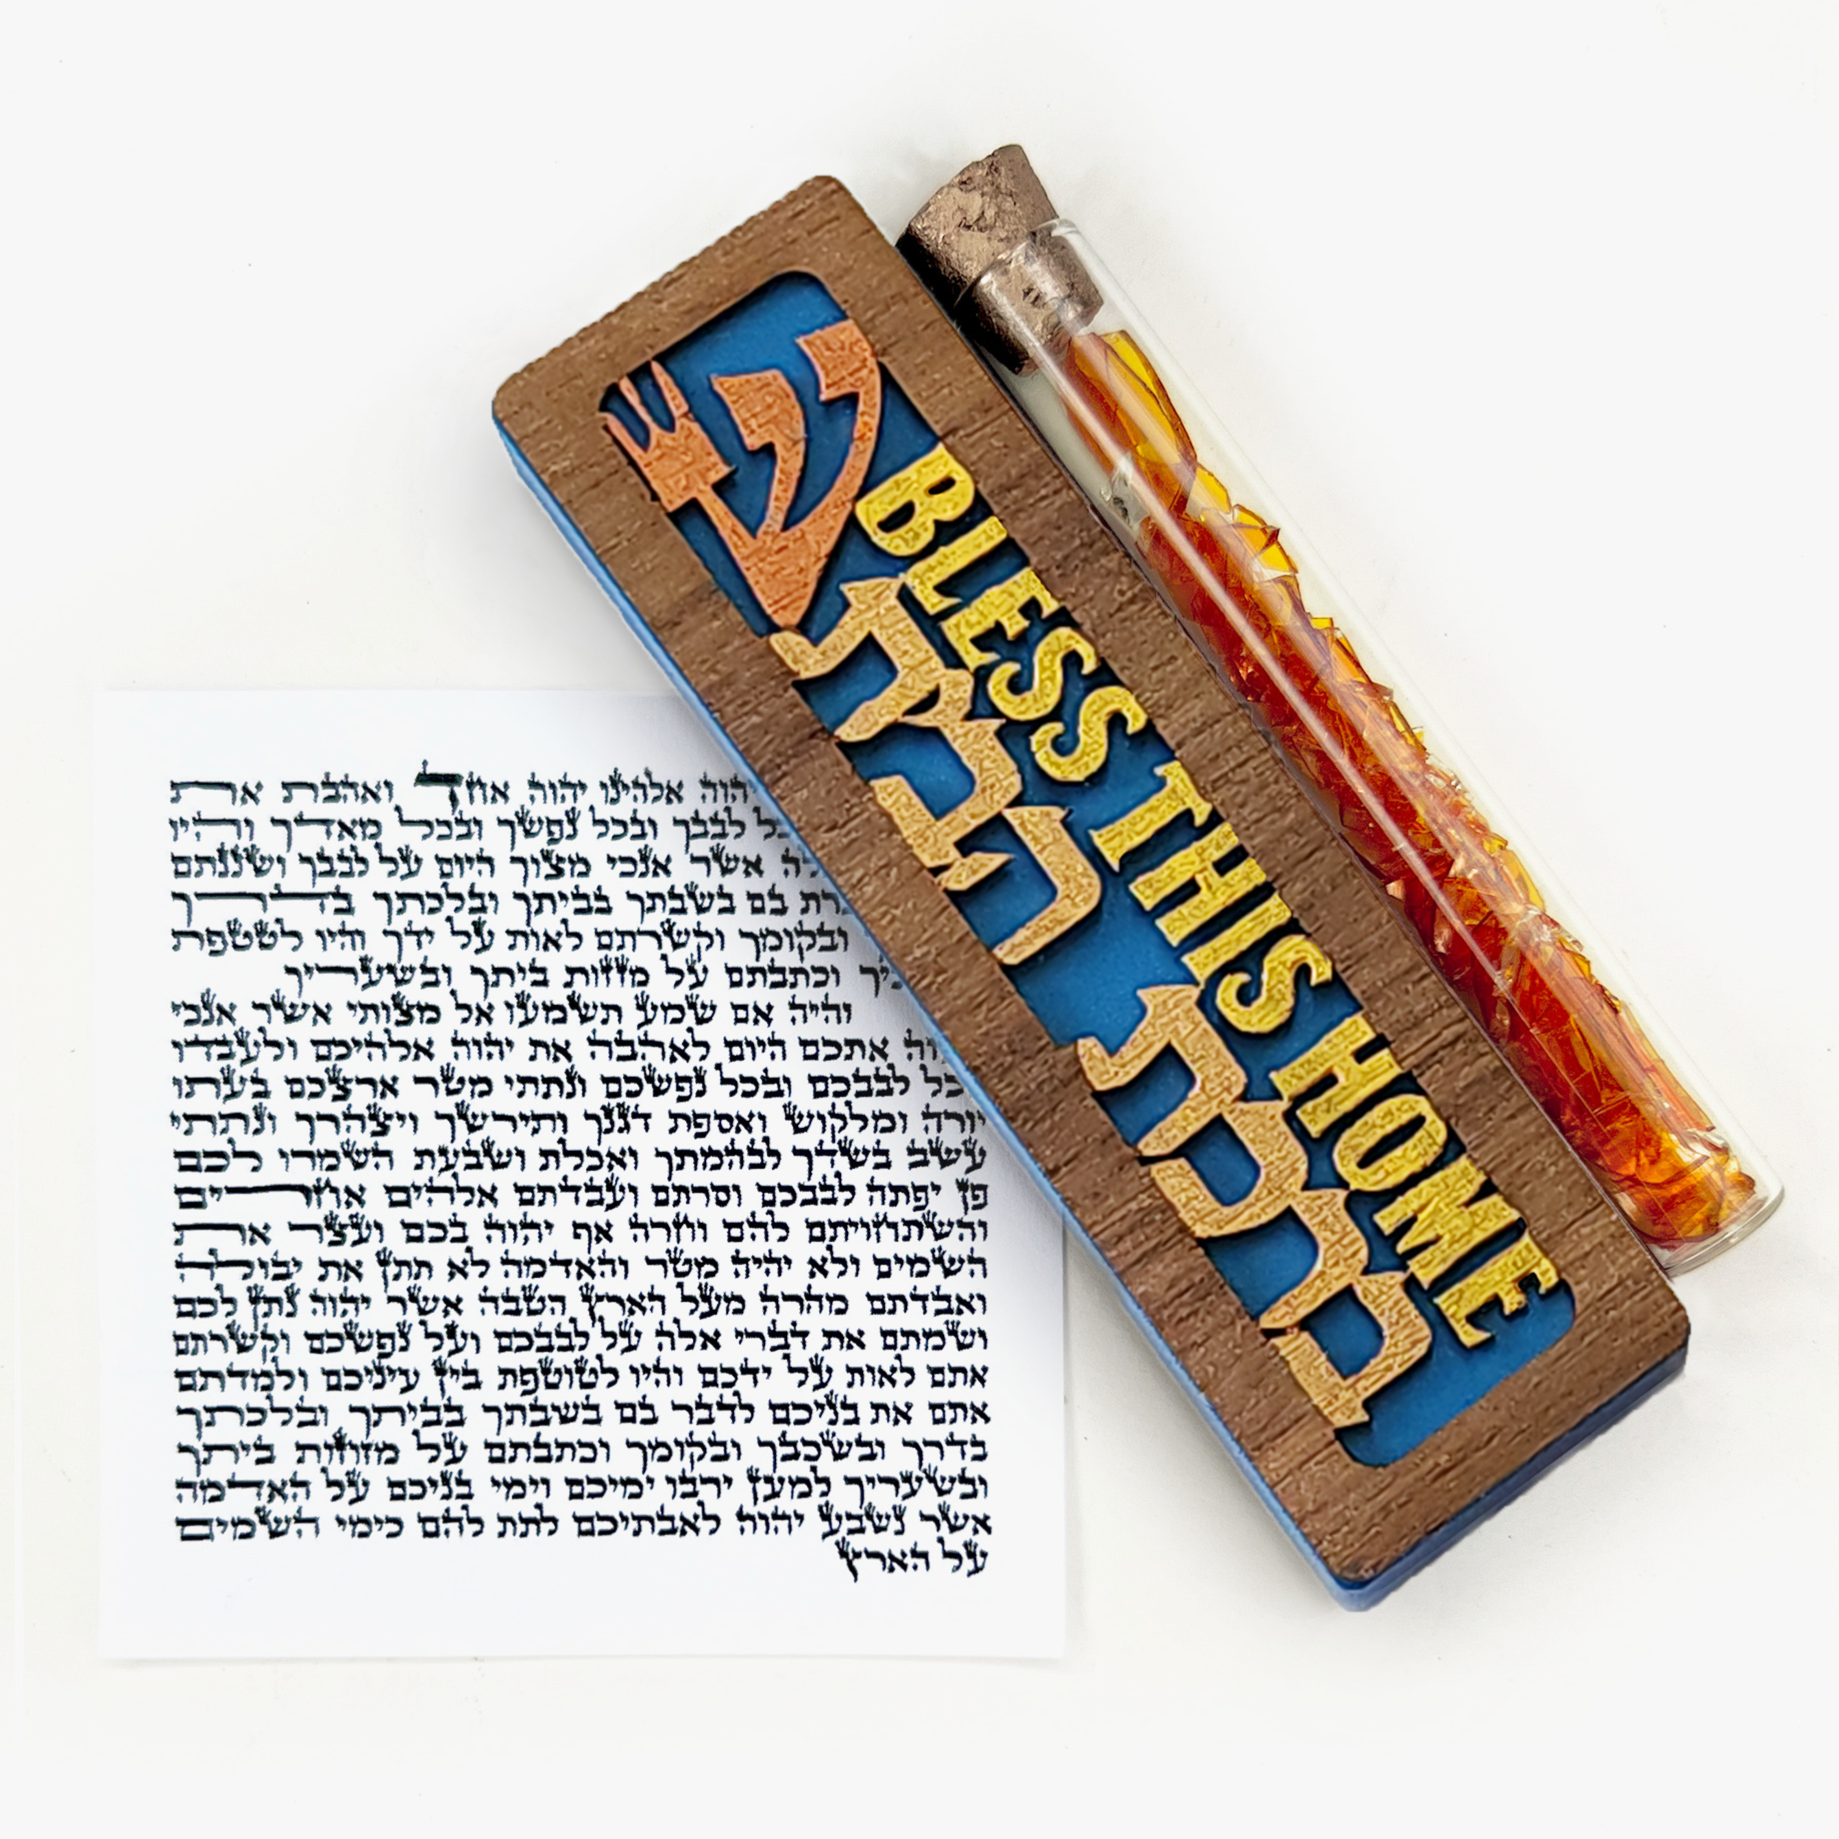 ש
BLESS THIS HOME
ברכת הבית
יהוה אלהינו יהוה אחד ואהבת את
לבבך ובכל נפשך ובכל מאדך והיו
אשר אנכי מצוך היום על לבבך ושננתם
בם בשבתך בביתך ובלכתך בדרך
ובקומך וקשרתם לאות על ידך והיו לטטפת
וכתבתם על מזזות ביתך ובשעריך
והיה אם שמע תשמעו אל מצותי אשר אנכי
אתכם היום לאהבה את יהוה אלהיכם ולעבדו
לבבכם ובכל נפשכם ונתתי מטר ארצכם בעתו
יורה ומלקוש ואספת דגנך ותירשך ויצהרך ונתתי
עשב בשדך לבהמתך ואכלת ושבעת השמרו לכם
פן יפתה לבבכם וסרתם ועבדתם אלהים אחרים
והשתחויתם להם וחרה אף יהוה בכם ועצר את
השמים ולא יהיה מטר והאדמה לא תתן את יבולה
ואבדתם מהרה מעל הארץ הטבה אשר יהוה נתן לכם
ושמתם את דברי אלה על לבבכם ועל נפשכם וקשרתם
אתם לאות על ידכם והיו לטוטפת בין עיניכם ולמדתם
אתם את בניכם לדבר בם בשבתך בביתך ובלכתך
בדרך ובשכבך ובקומך וכתבתם על מזוזות ביתך
ובשעריך למען ירבו ימיכם וימי בניכם על האדמה
אשר נשבע יהוה לאבתיכם לתת להם כימי השמים
על הארץ